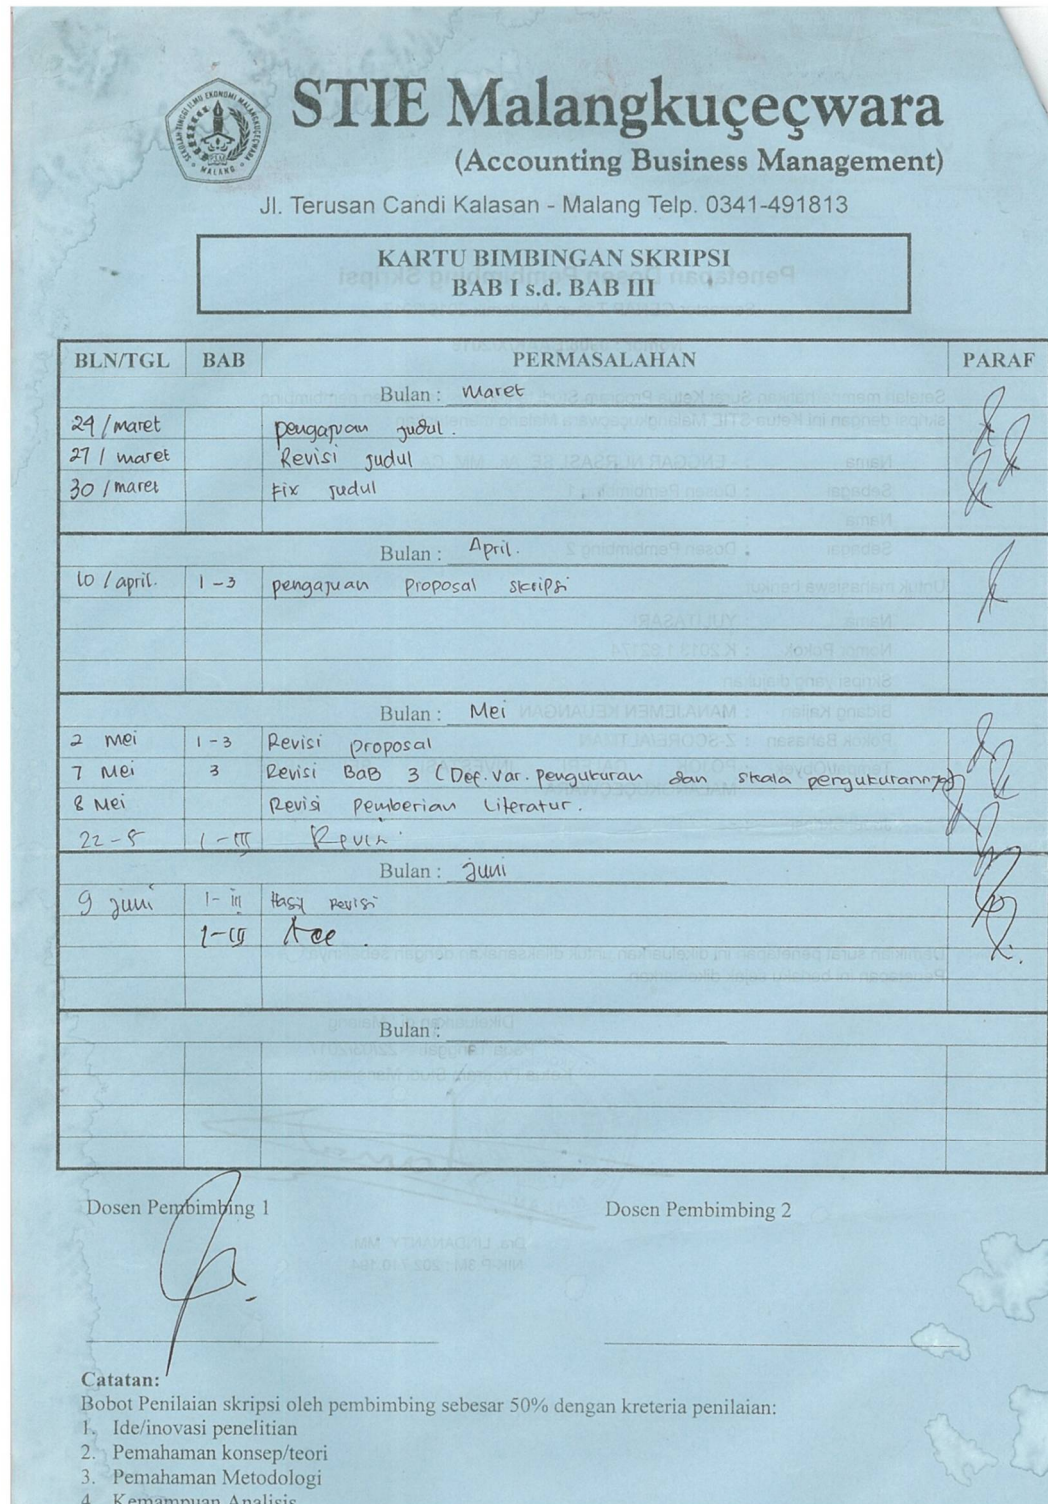 STIE Malangkuçeçwara
(Accounting Business Management)
Jl. Terusan Candi Kalasan - Malang Telp. 0341-491813
KARTU BIMBINGAN SKRIPSI
BAB I s.d. BAB III
BLN/TGL BAB PERMASALAHAN PARAF
Bulan : Maret
24 / maret pengajuan judul.
27 / maret Revisi judul
30 / maret Fix judul
Bulan : April.
10 / april. 1-3 pengajuan proposal skripsi
Bulan : Mei
2 mei 1-3 Revisi proposal
7 Mei 3 Revisi BaB 3 (Def. Var. pengukuran dan skala pengukurannya)
8 Mei Revisi pemberian Literatur.
22-5 I-III Revisi
Bulan : juni
9 juni I-III Hasil revisi
I-III Acc.
Bulan :
Dosen Pembimbing 1 Dosen Pembimbing 2
Catatan:
Bobot Penilaian skripsi oleh pembimbing sebesar 50% dengan kreteria penilaian:
1. Ide/inovasi penelitian
2. Pemahaman konsep/teori
3. Pemahaman Metodologi
4. Kemampuan Analisis